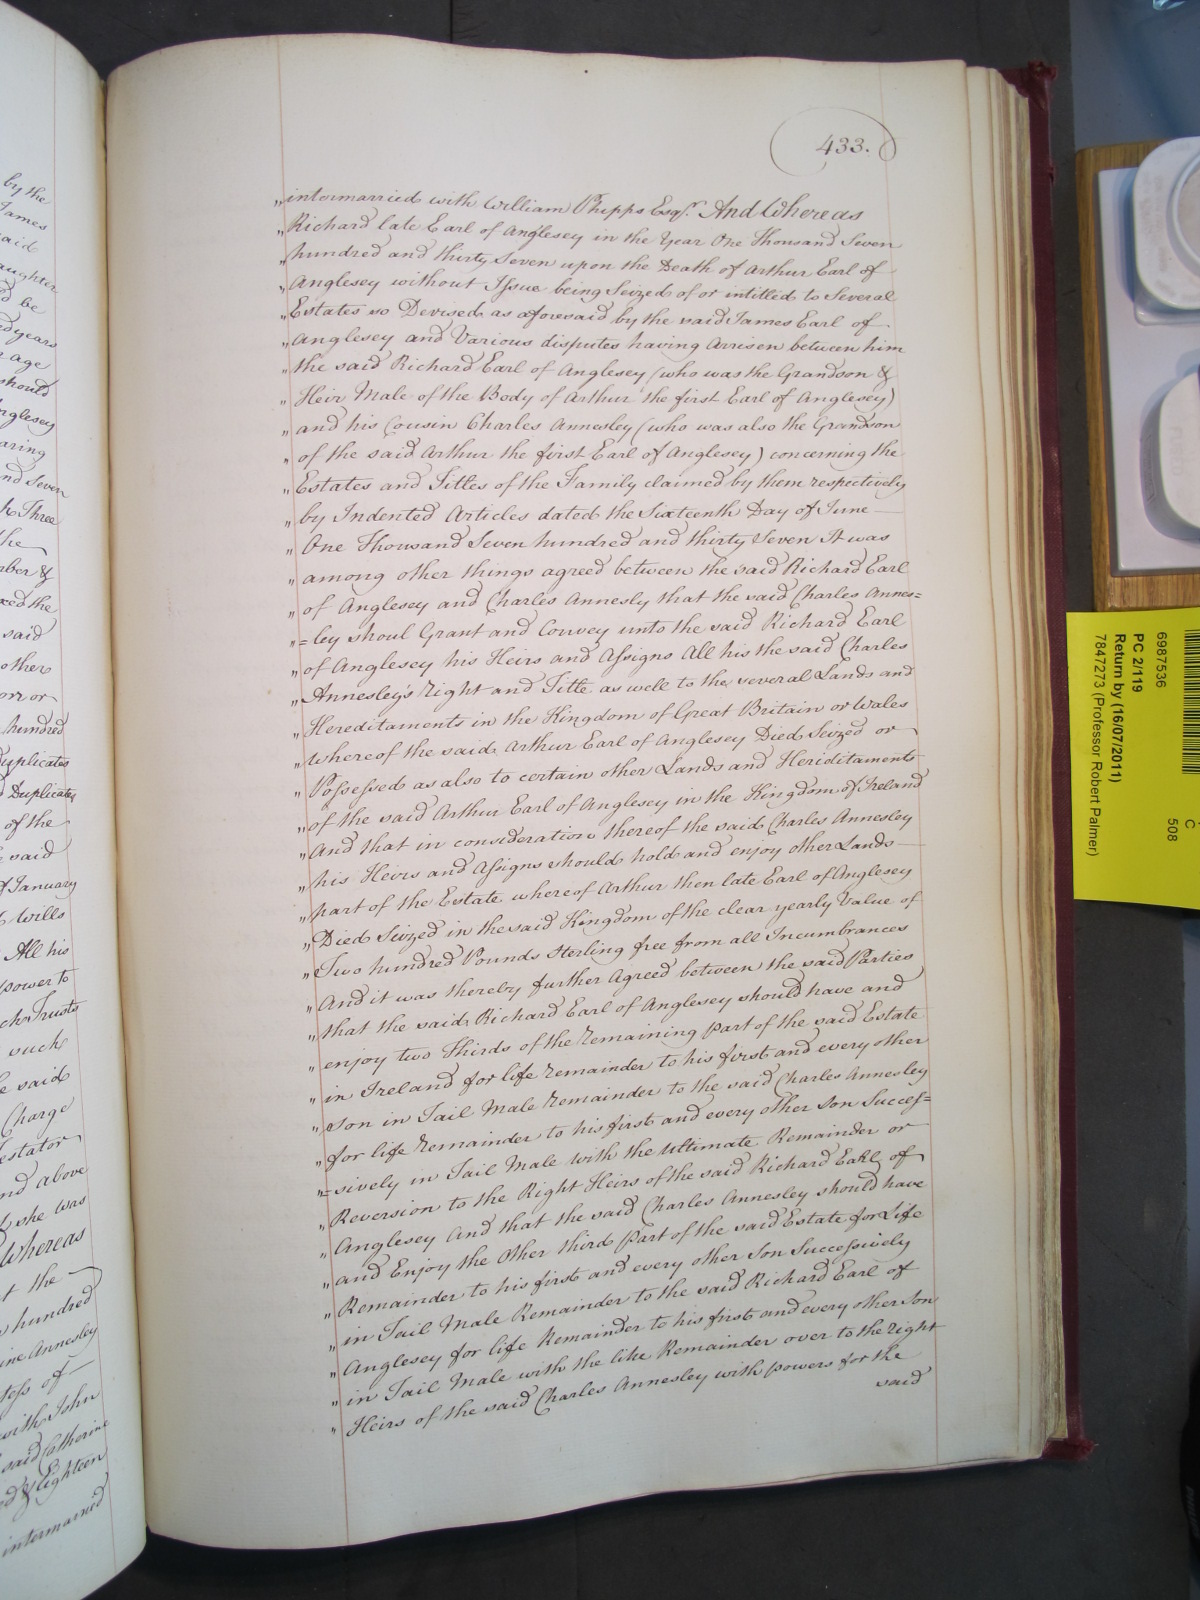 433.
„intermarried with William Phipps Esqr. And Whereas
„Richard late Earl of Anglesey in the Year One Thousand Seven
„hundred and thirty Seven upon the Death of Arthur Earl of
„Anglesey without Issue being Seized of or intitled to Several
„Estates so Devised as aforesaid by the said James Earl of
„Anglesey and Various disputes having Arrisen between him
„the said Richard Earl of Anglesey (who was the Grandson &
„Heir Male of the Body of Arthur the first Earl of Anglesey)
„and his Cousin Charles Annesley (who was also the Grandson
„of the said Arthur the first Earl of Anglesey) concerning the
„Estates and Titles of the Family claimed by them respectively
„by Indented Articles dated the Sixteenth Day of June
„One Thousand Seven hundred and thirty Seven It was
„among other things agreed between the said Richard Earl
„of Anglesey and Charles Annesly that the said Charles Annes=
„=ley shoul Grant and Convey unto the said Richard Earl
„of Anglesey his Heirs and Assigns All his the said Charles
„Annesley's Right and Title as well to the several Lands and
„Hereditaments in the Kingdom of Great Britain or Wales
„whereof the said Arthur Earl of Anglesey Died Seized or
„Possessed as also to certain other Lands and Heriditaments
„of the said Arthur Earl of Anglesey in the Kingdom of Ireland
„And that in consideration thereof the said Charles Annesley
„his Heirs and Assigns should hold and enjoy other Lands
„part of the Estate whereof Arthur then late Earl of Anglesey
„Died Seized in the said Kingdom of the clear yearly Value of
„Two hundred Pounds Sterling free from all Incumbrances
„And it was thereby further Agreed between the said Parties
„that the said Richard Earl of Anglesey should have and
„enjoy two Thirds of the Remaining part of the said Estate
„in Ireland for life Remainder to his first and every other
„son in Tail Male Remainder to the said Charles Annesley
„for life Remainder to his first and every other son Succes=
„=sively in Tail Male with the Ultimate Remainder or
„Reversion to the Right Heirs of the said Richard Earl of
„Anglesey And that the said Charles Annesley should have
„and Enjoy the Other third part of the said Estate for Life
„Remainder to his first and every other Son Successively
„in Tail Male Remainder to the said Richard Earl of
„Anglesey for life Remainder to his first and every other Son
„in Tail Male with the like Remainder over to the Right
„Heirs of the said Charles Annesley with powers for the
said
by the
James
said
aughter
d be
ed years
age
should
nglesey
aring
nd Seven
Three
the
mber &
the
said
other
on or
hundred
uplicates
Duplicates
of the
said
of January
Wills
All his
power to
ch Trusts
such
said
Charge
estator
nd above
she was
Whereas
t the
hundred
ine Annesley
tess of
with John
said Catherine
ed & Eighteen
intermarried
6987536
PC 2/119
Return by (16/07/2011)
7847273 (Professor Robert Palmer)
C
508